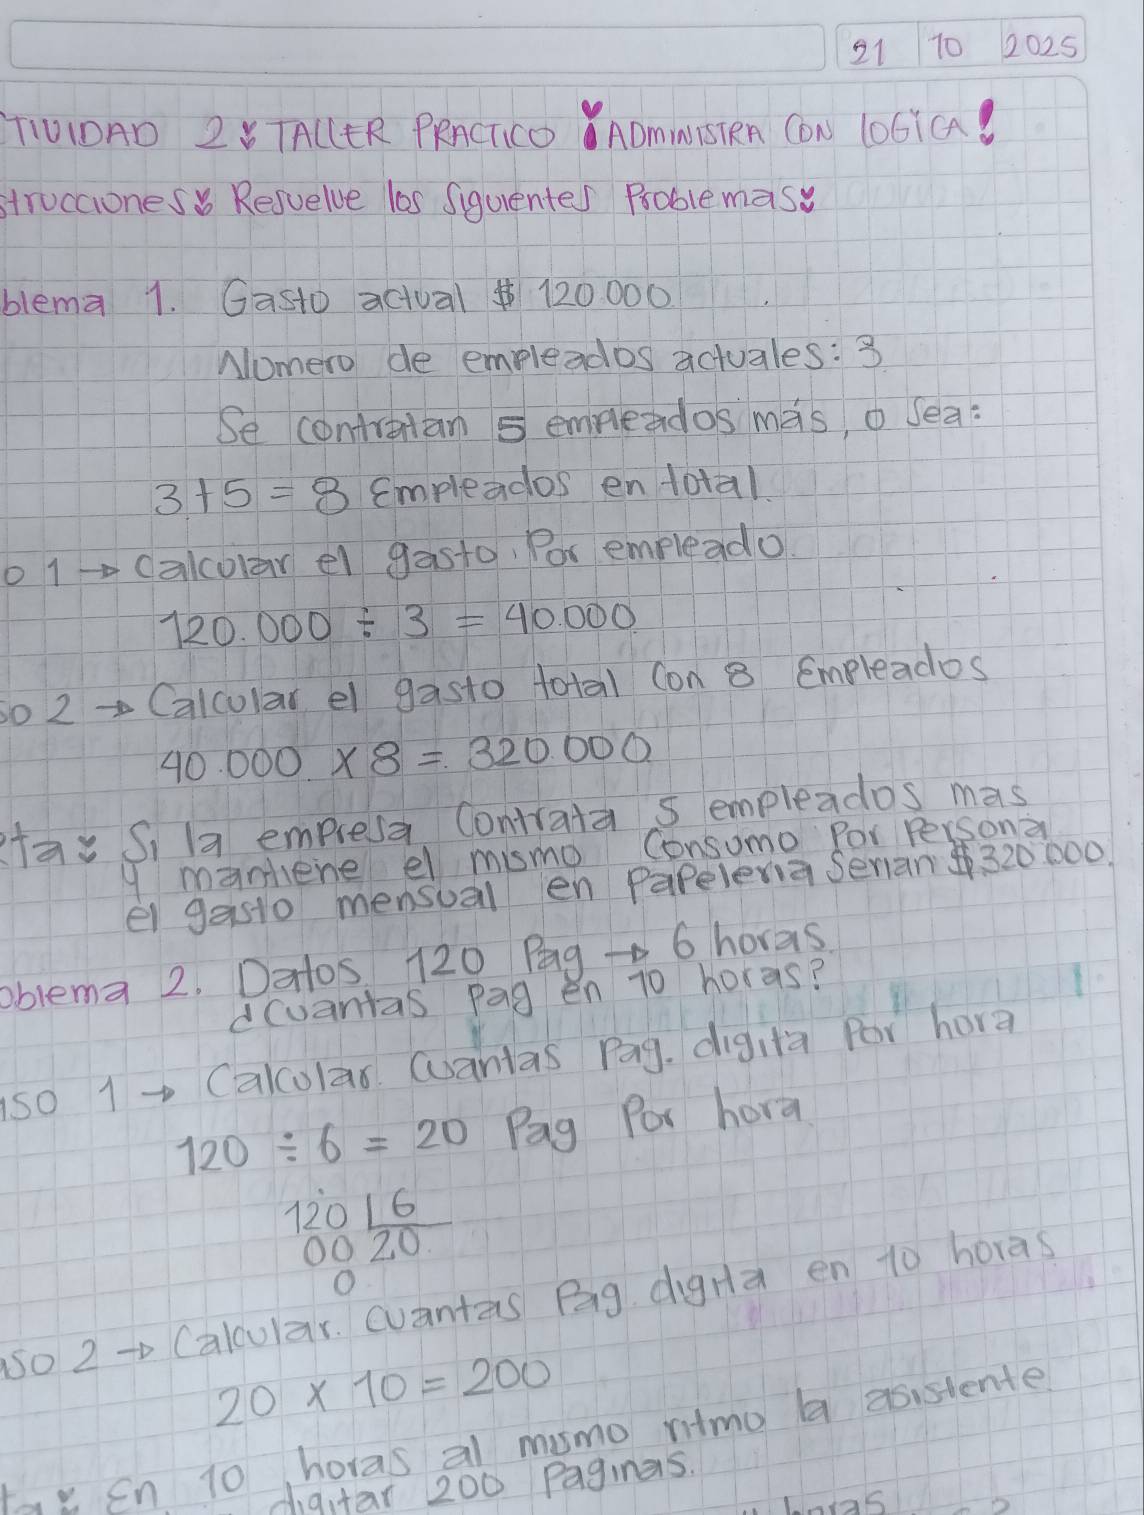 21 10 2025
TIVIDAD 2: TALLER PRACTICO ¡ADMINISTRA CON LOGICA!
strucciones: Resuelve los siguientes Problemas:
blema 1. Gasto actual $ 120.000
Numero de empleados actuales: 3
Se contratan 5 empleados más, o sea:
3+5 = 8 Empleados en total.
o 1 → Calcular el gasto Por empleado.
120.000 ÷ 3 = 40.000
so 2 → Calcular el gasto total Con 8 Empleados
40.000 x 8 = 320.000
eta: Si la empresa Contrata 5 empleados mas
y mantiene el mismo Consumo Por Persona
el gasto mensual en Papeleria Serian $320.000.
oblema 2. Datos 120 Pag → 6 horas.
¿Cuantas Pag en 10 horas?
aso 1 → Calcular. Cuantas Pag. digita Por hora
120 ÷ 6 = 20 Pag Por hora
120 6
00 20
0
aso 2 → Calcular. Cuantas Pag. digita en 10 horas
20 x 10 = 200
ta: En 10 horas al mismo ritmo la asistente
digitar 200 Paginas.
horas